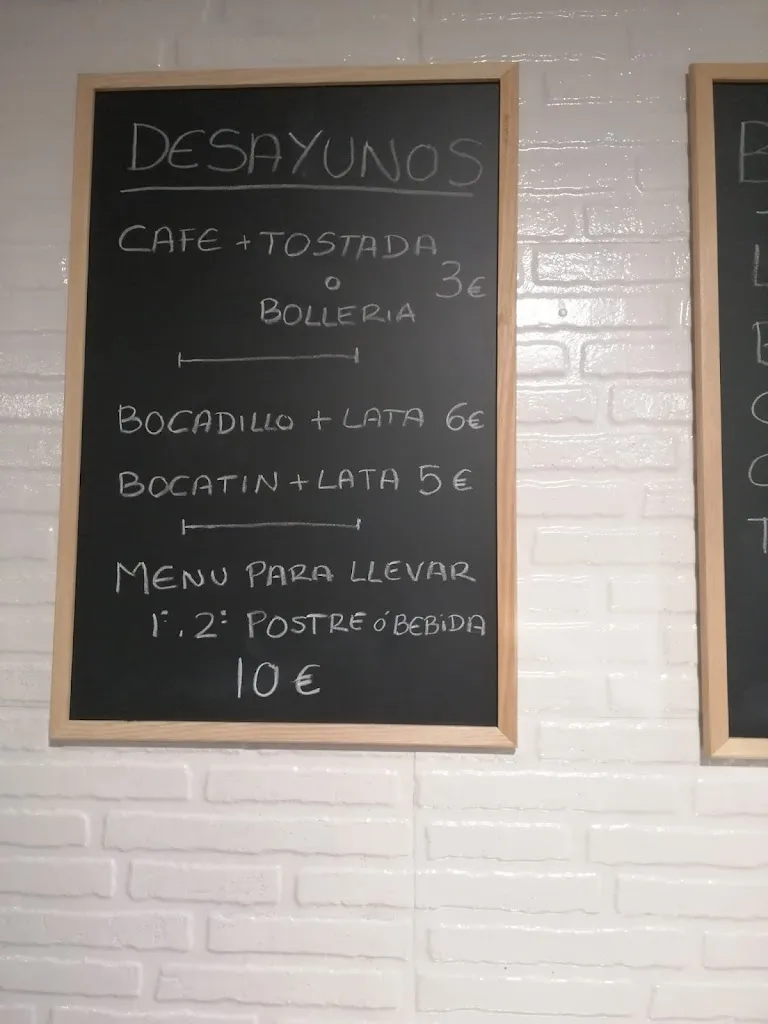 DESAYUNOS
CAFE + TOSTADA
o 3€
BOLLERIA
BOCADILLO + LATA 6€
BOCATIN + LATA 5€
MENU PARA LLEVAR
1º. 2º POSTRE ó BEBIDA
10€